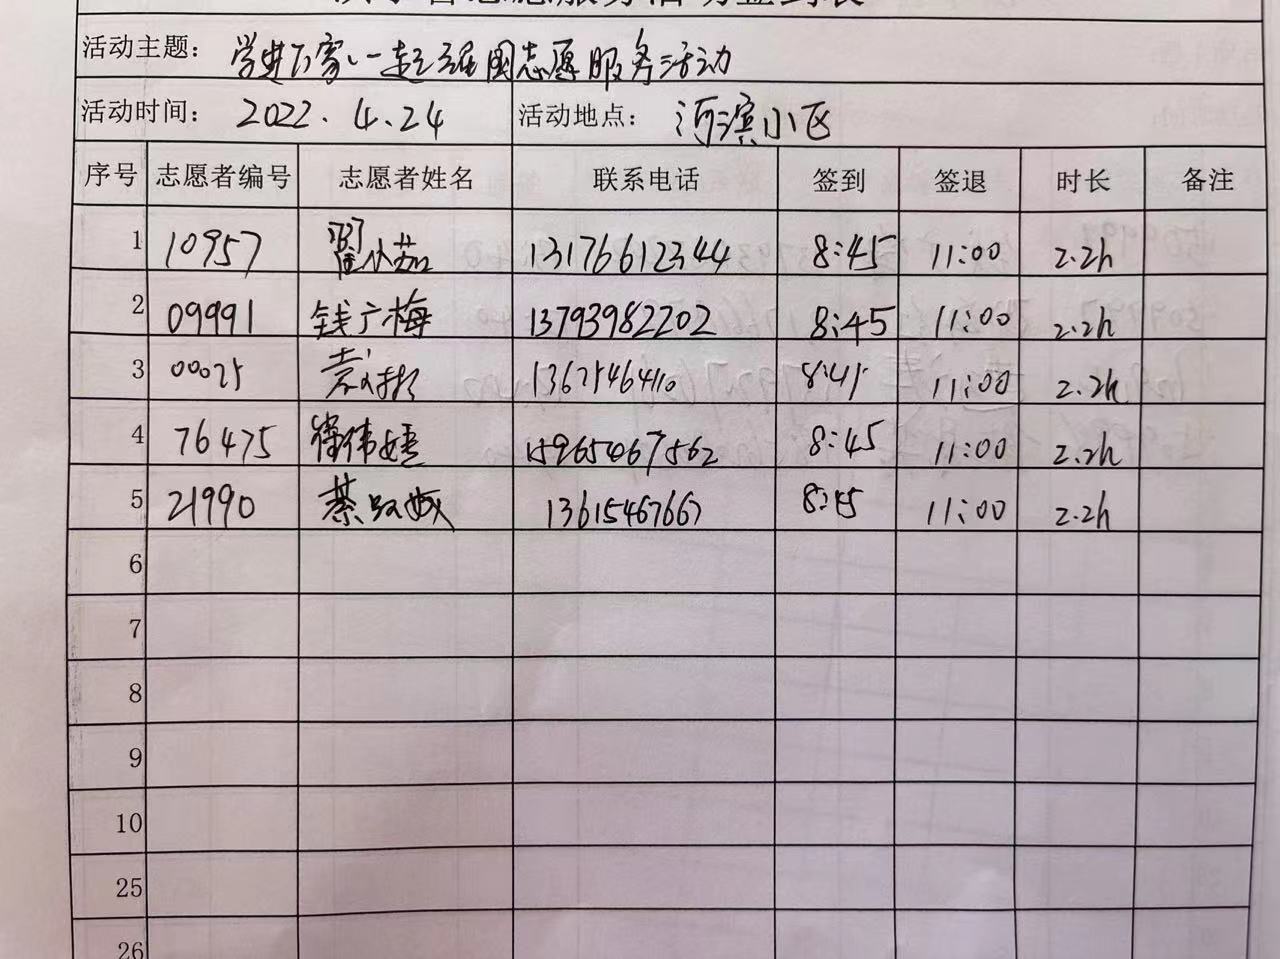 活动主题: 学进万家、一起强国志愿服务活动
活动时间: 2022.4.24 活动地点: 河滨小区
序号 志愿者编号 志愿者姓名 联系电话 签到 签退 时长 备注
1 10957 翟小茹 13176612344 8:45 11:00 2.2h
2 09991 钱广梅 13793982202 8:45 11:00 2.2h
3 00025 13675464110 8:45 11:00 2.2h
4 76475 15965067562 8:45 11:00 2.2h
5 21990 13615467667 8:45 11:00 2.2h
6
7
8
9
10
25
26